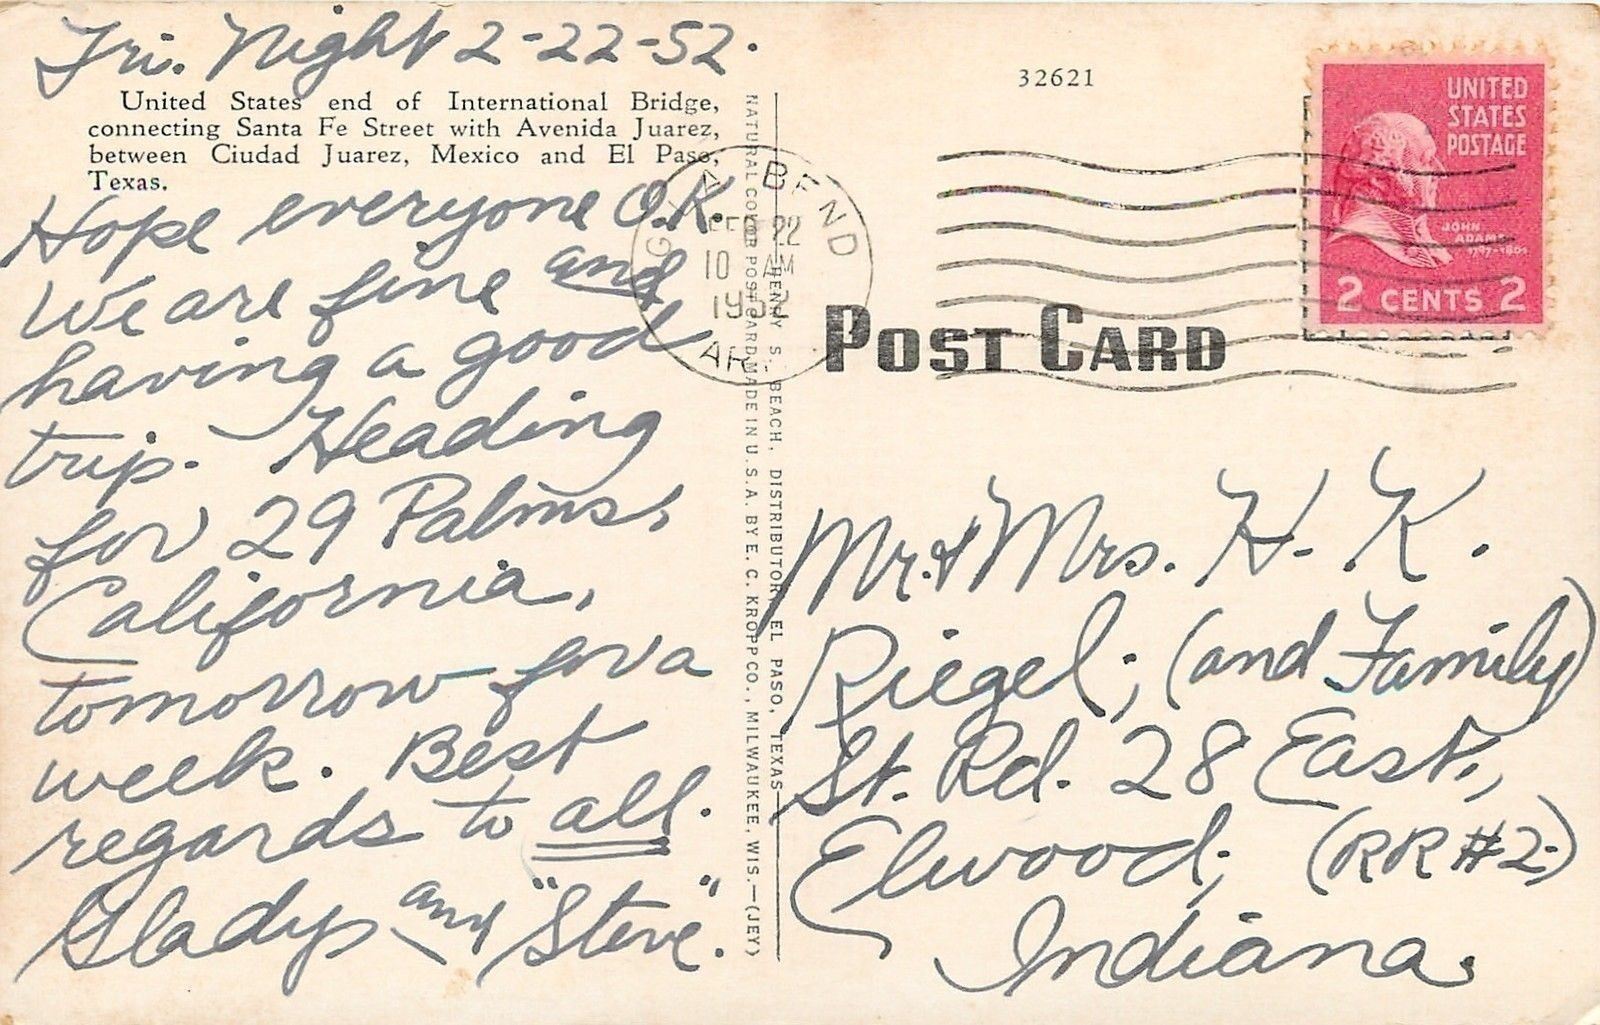 Fri. Night 2-22-52.
United States end of International Bridge,
connecting Santa Fe Street with Avenida Juarez,
between Ciudad Juarez, Mexico and El Paso,
Texas.
Hope everyone O.K.
We are fine and
having a good
trip. Heading
for 29 Palms,
California,
tomorrow for a
week. Best
regards to all.
Gladys and "Steve".
NATURAL COLOR POST CARD MADE IN U.S.A. BY E. C. KROPP CO., MILWAUKEE, WIS.—(JEY)
HENRY S. BEACH, DISTRIBUTOR, EL PASO, TEXAS
32621
GILA BEND
FEB 22
10 AM
1952
ARIZ
POST CARD
UNITED
STATES
POSTAGE
JOHN
ADAMS
1797-1801
2 CENTS 2
Mr. & Mrs. H. K.
Riegel, (and Family)
St. Rd. 28 East,
Elwood, (RR #2.)
Indiana.